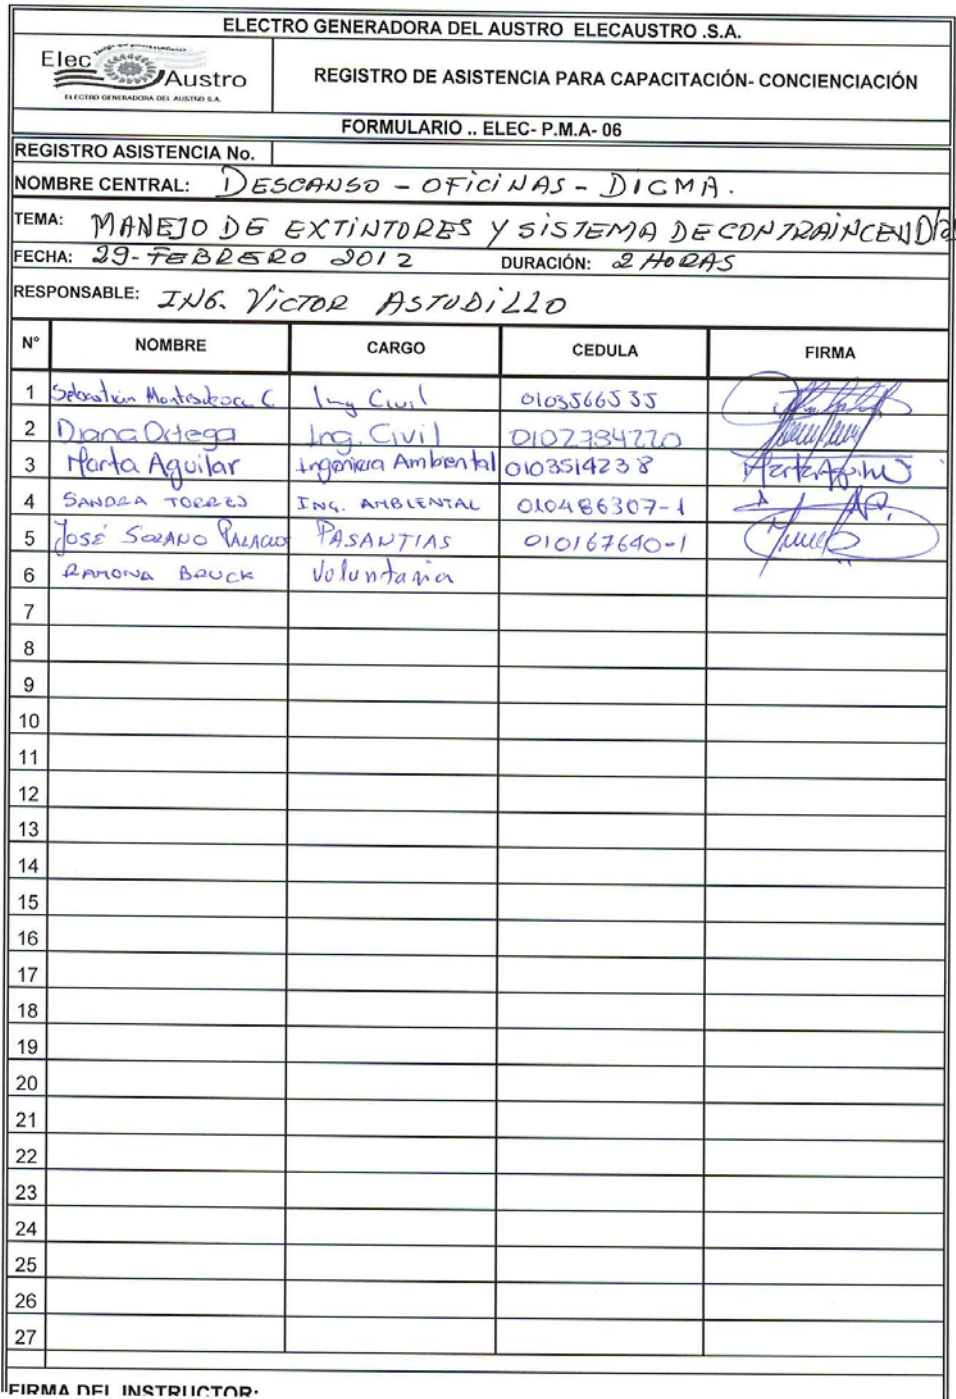 ELECTRO GENERADORA DEL AUSTRO ELECAUSTRO .S.A.
Elec Austro
ELECTRO GENERADORA DEL AUSTRO S.A.
REGISTRO DE ASISTENCIA PARA CAPACITACIÓN- CONCIENCIACIÓN
FORMULARIO .. ELEC- P.M.A- 06
REGISTRO ASISTENCIA No.
NOMBRE CENTRAL: DESCANSO - OFICINAS - DIGMA.
TEMA: MANEJO DE EXTINTORES Y SISTEMA DE CONTRAINCENDIO
FECHA: 29-FEBRERO 2012 DURACIÓN: 2 HORAS
RESPONSABLE: ING. VICTOR ASTUDILLO
N° NOMBRE CARGO CEDULA FIRMA
1 Sebastián Montesdeoca C Ing Civil 0103566535
2 Diana Ortega Ing. Civil 0102784220
3 Marta Aguilar Ingeniera Ambiental 0103514238 Marta Aguilar
4 SANDRA TORRES ING. AMBIENTAL 010486307-1
5 JOSÉ SOLANO PALACIOS PASANTIAS 010167640-1
6 RAMONA BRUCK Voluntaria
7
8
9
10
11
12
13
14
15
16
17
18
19
20
21
22
23
24
25
26
27
FIRMA DEL INSTRUCTOR: